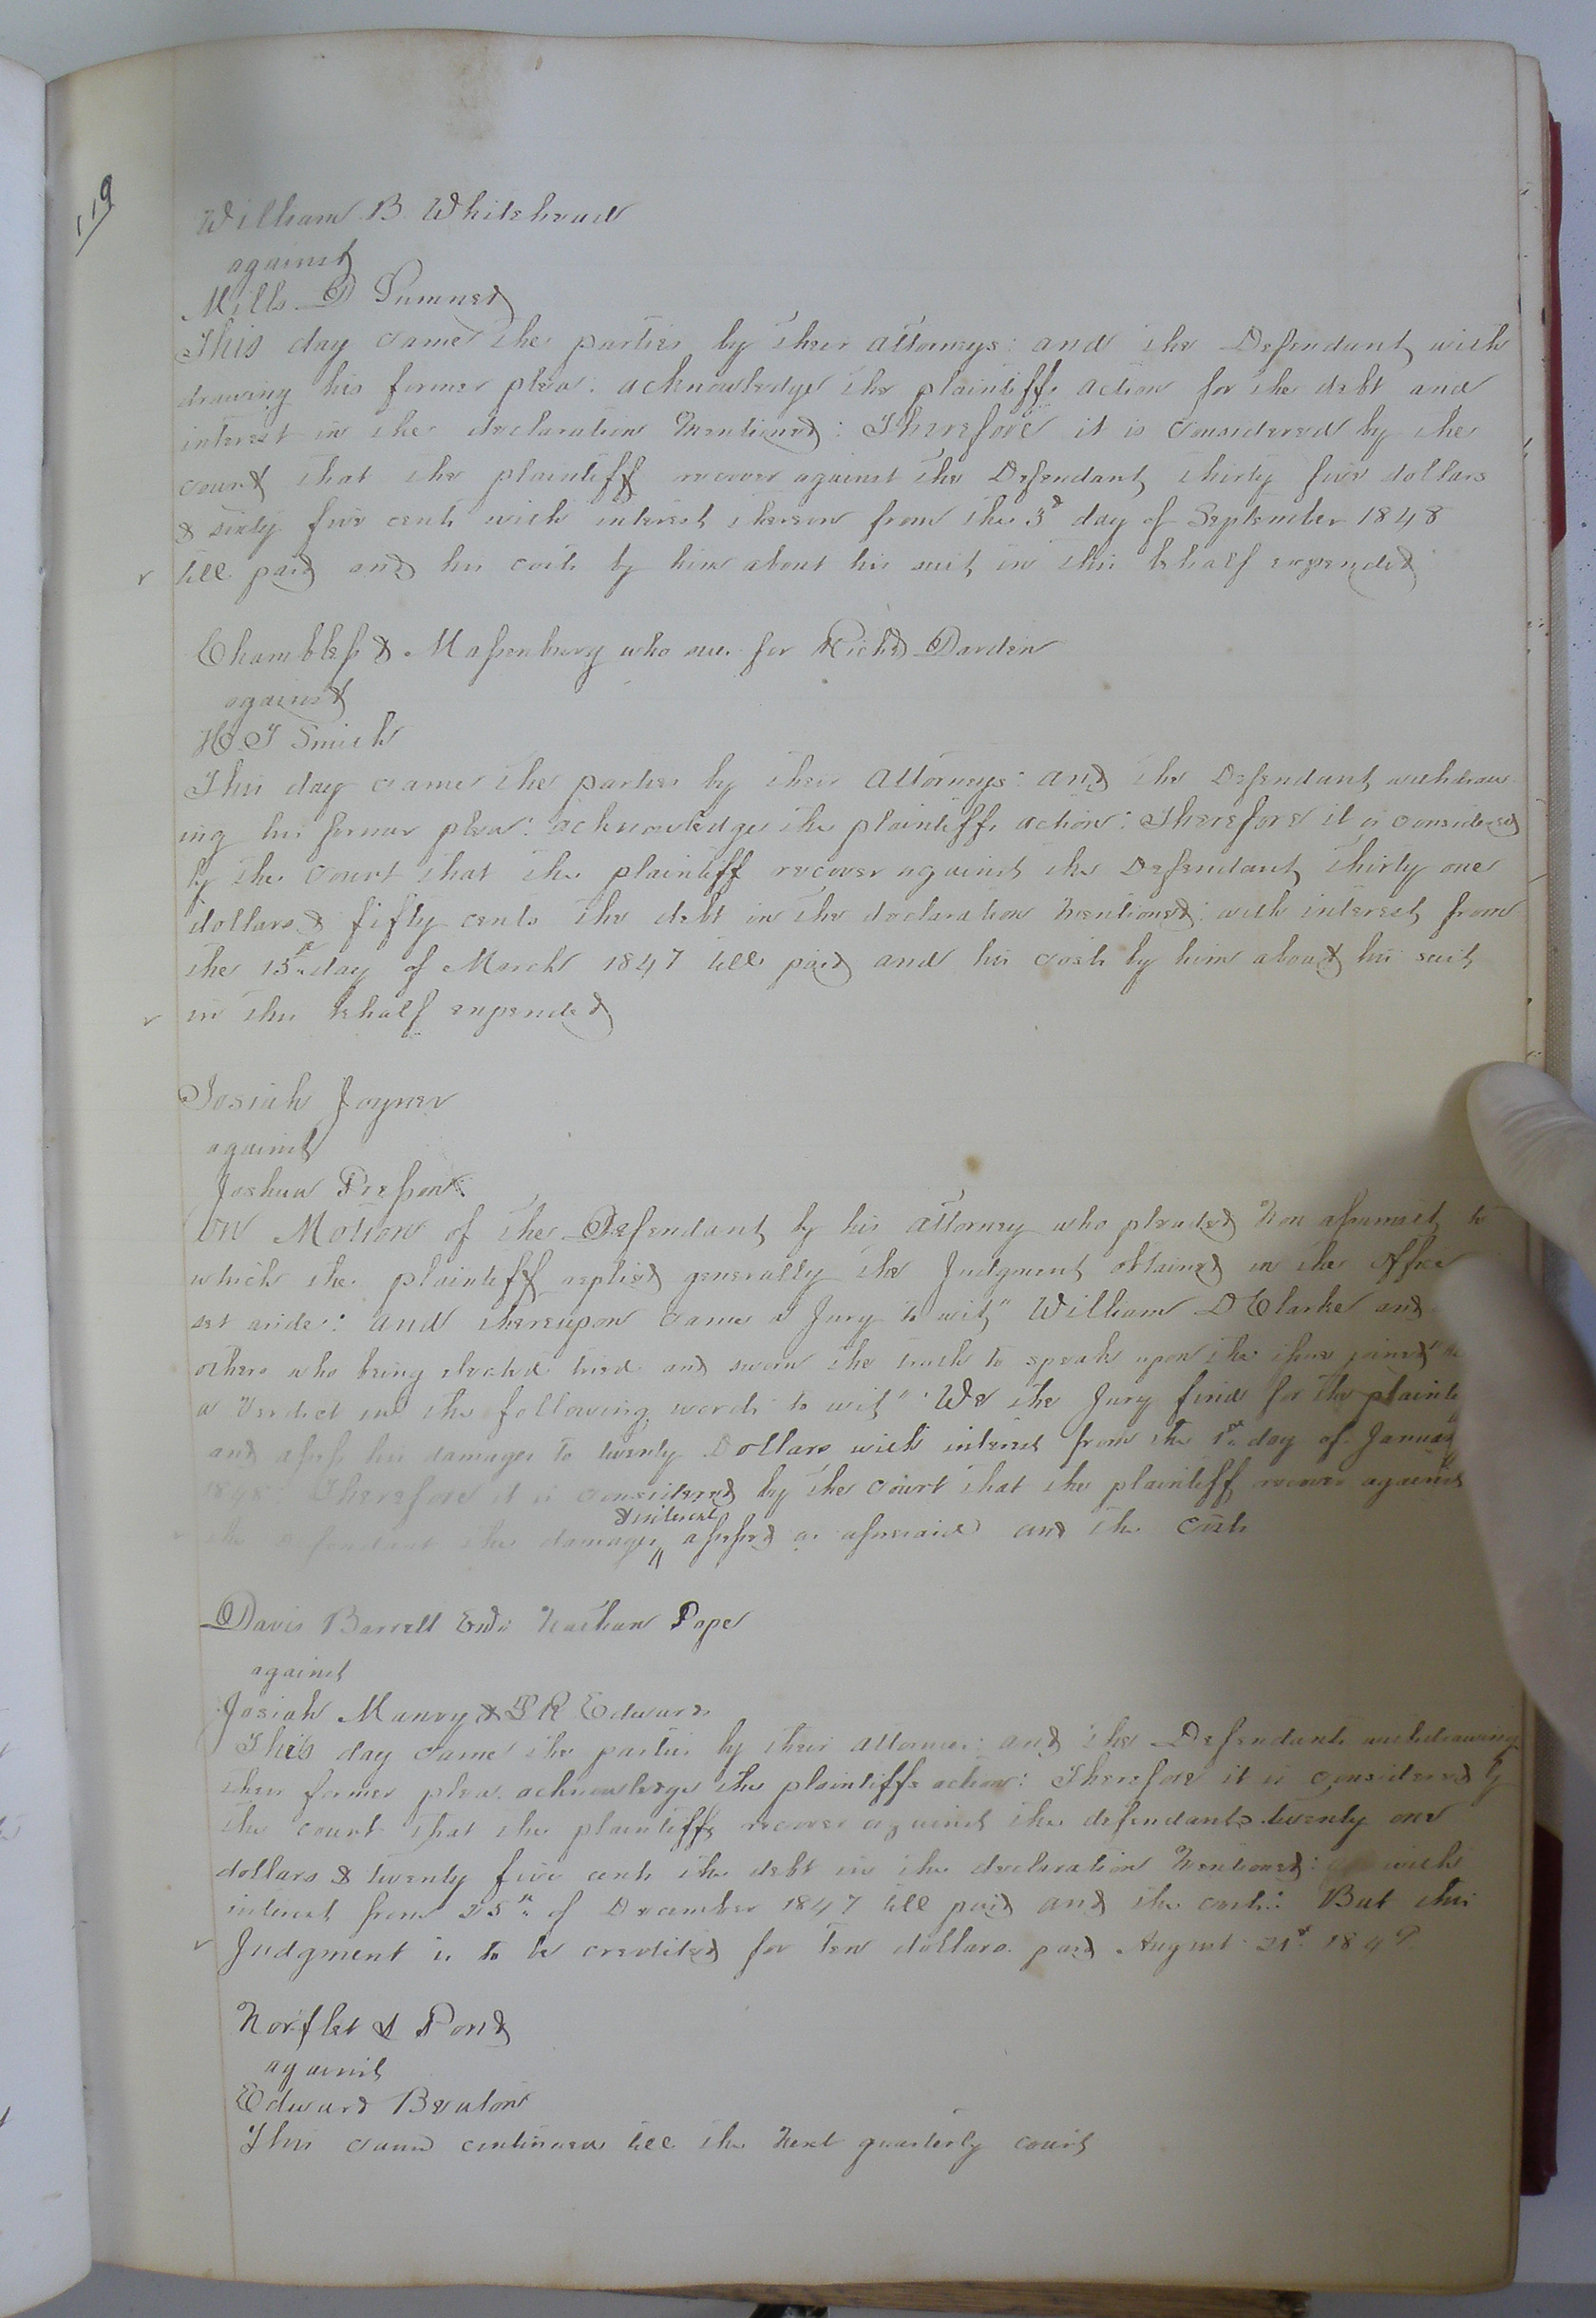 119
William B Whitehead
against
Mills D Sumner
This day came the parties by their attorneys: and the Defendant with
drawing his former plea: acknowledges the plaintiffs action for the debt and
interest in the declaration mentioned: Therefore it is considered by the
court that the plaintiff recover against the Defendant thirty five dollars
& sixty five cents with interest thereon from the 3d day of September 1848
till paid and his costs by him about his suit in this behalf expended
Chambless & Massenburg who sue for Richd Darden
against
H. T Smith
This day came the parties by their attorneys: and the Defendant withdraw
ing his former plea: acknowledges the plaintiffs action: Therefore it is considered
by the court that the plaintiff recover against the Defendant thirty one
dollars & fifty cents the debt in the declaration mentioned: with interest from
the 15th day of March 1847 till paid and his costs by him about his suit
in this behalf expended
Josiah Joyner
against
Joshua Presson
On Motion of the Defendant by his attorney who pleaded Non assumsit to
which the plaintiff replied generally the Judgment obtained in the office
set aside: and thereupon came a Jury to wit" William D Clarke and
others who being elected tried and sworn the truth to speak upon the issue joined"
a Verdict in the following words to wit" "We the Jury find for the plainti
and assess his damages to twenty Dollars with interest from the 1st day of Januar
1848 Therefore it is considered by the court that the plaintiff recover against
& interest
the defendant the damages assessed as aforesaid and the costs
Davis Barrell Nathan Pope
against
Josiah Manry & R Edwards
This day came the parties by their attornies: and the Defendants withdrawing
their former plea acknowledge the plaintiffs action: Therefore it is considered by
the court that the plaintiffs recover against the defendants twenty one
dollars & twenty five cents the debt in the declaration mentioned: with
interest from 25th of December 1847 till paid and the costs: But this
Judgment is to be credited for ten dollars paid August 21st
Norflet & Pond
against
Edward Beaton
This cause continued till the next quarterly court